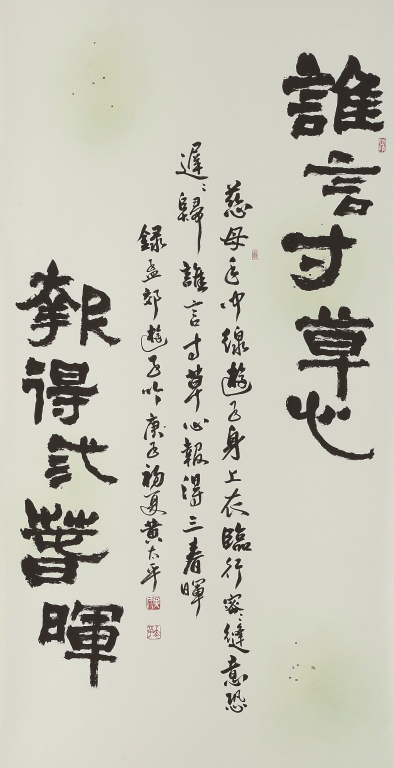 誰言寸草心
慈母手中線遊子身上衣臨行密〻縫意恐
遲〻歸誰言寸草心報得三春暉
錄孟郊遊子吟庚子初夏黄太平
報得弎萅暉